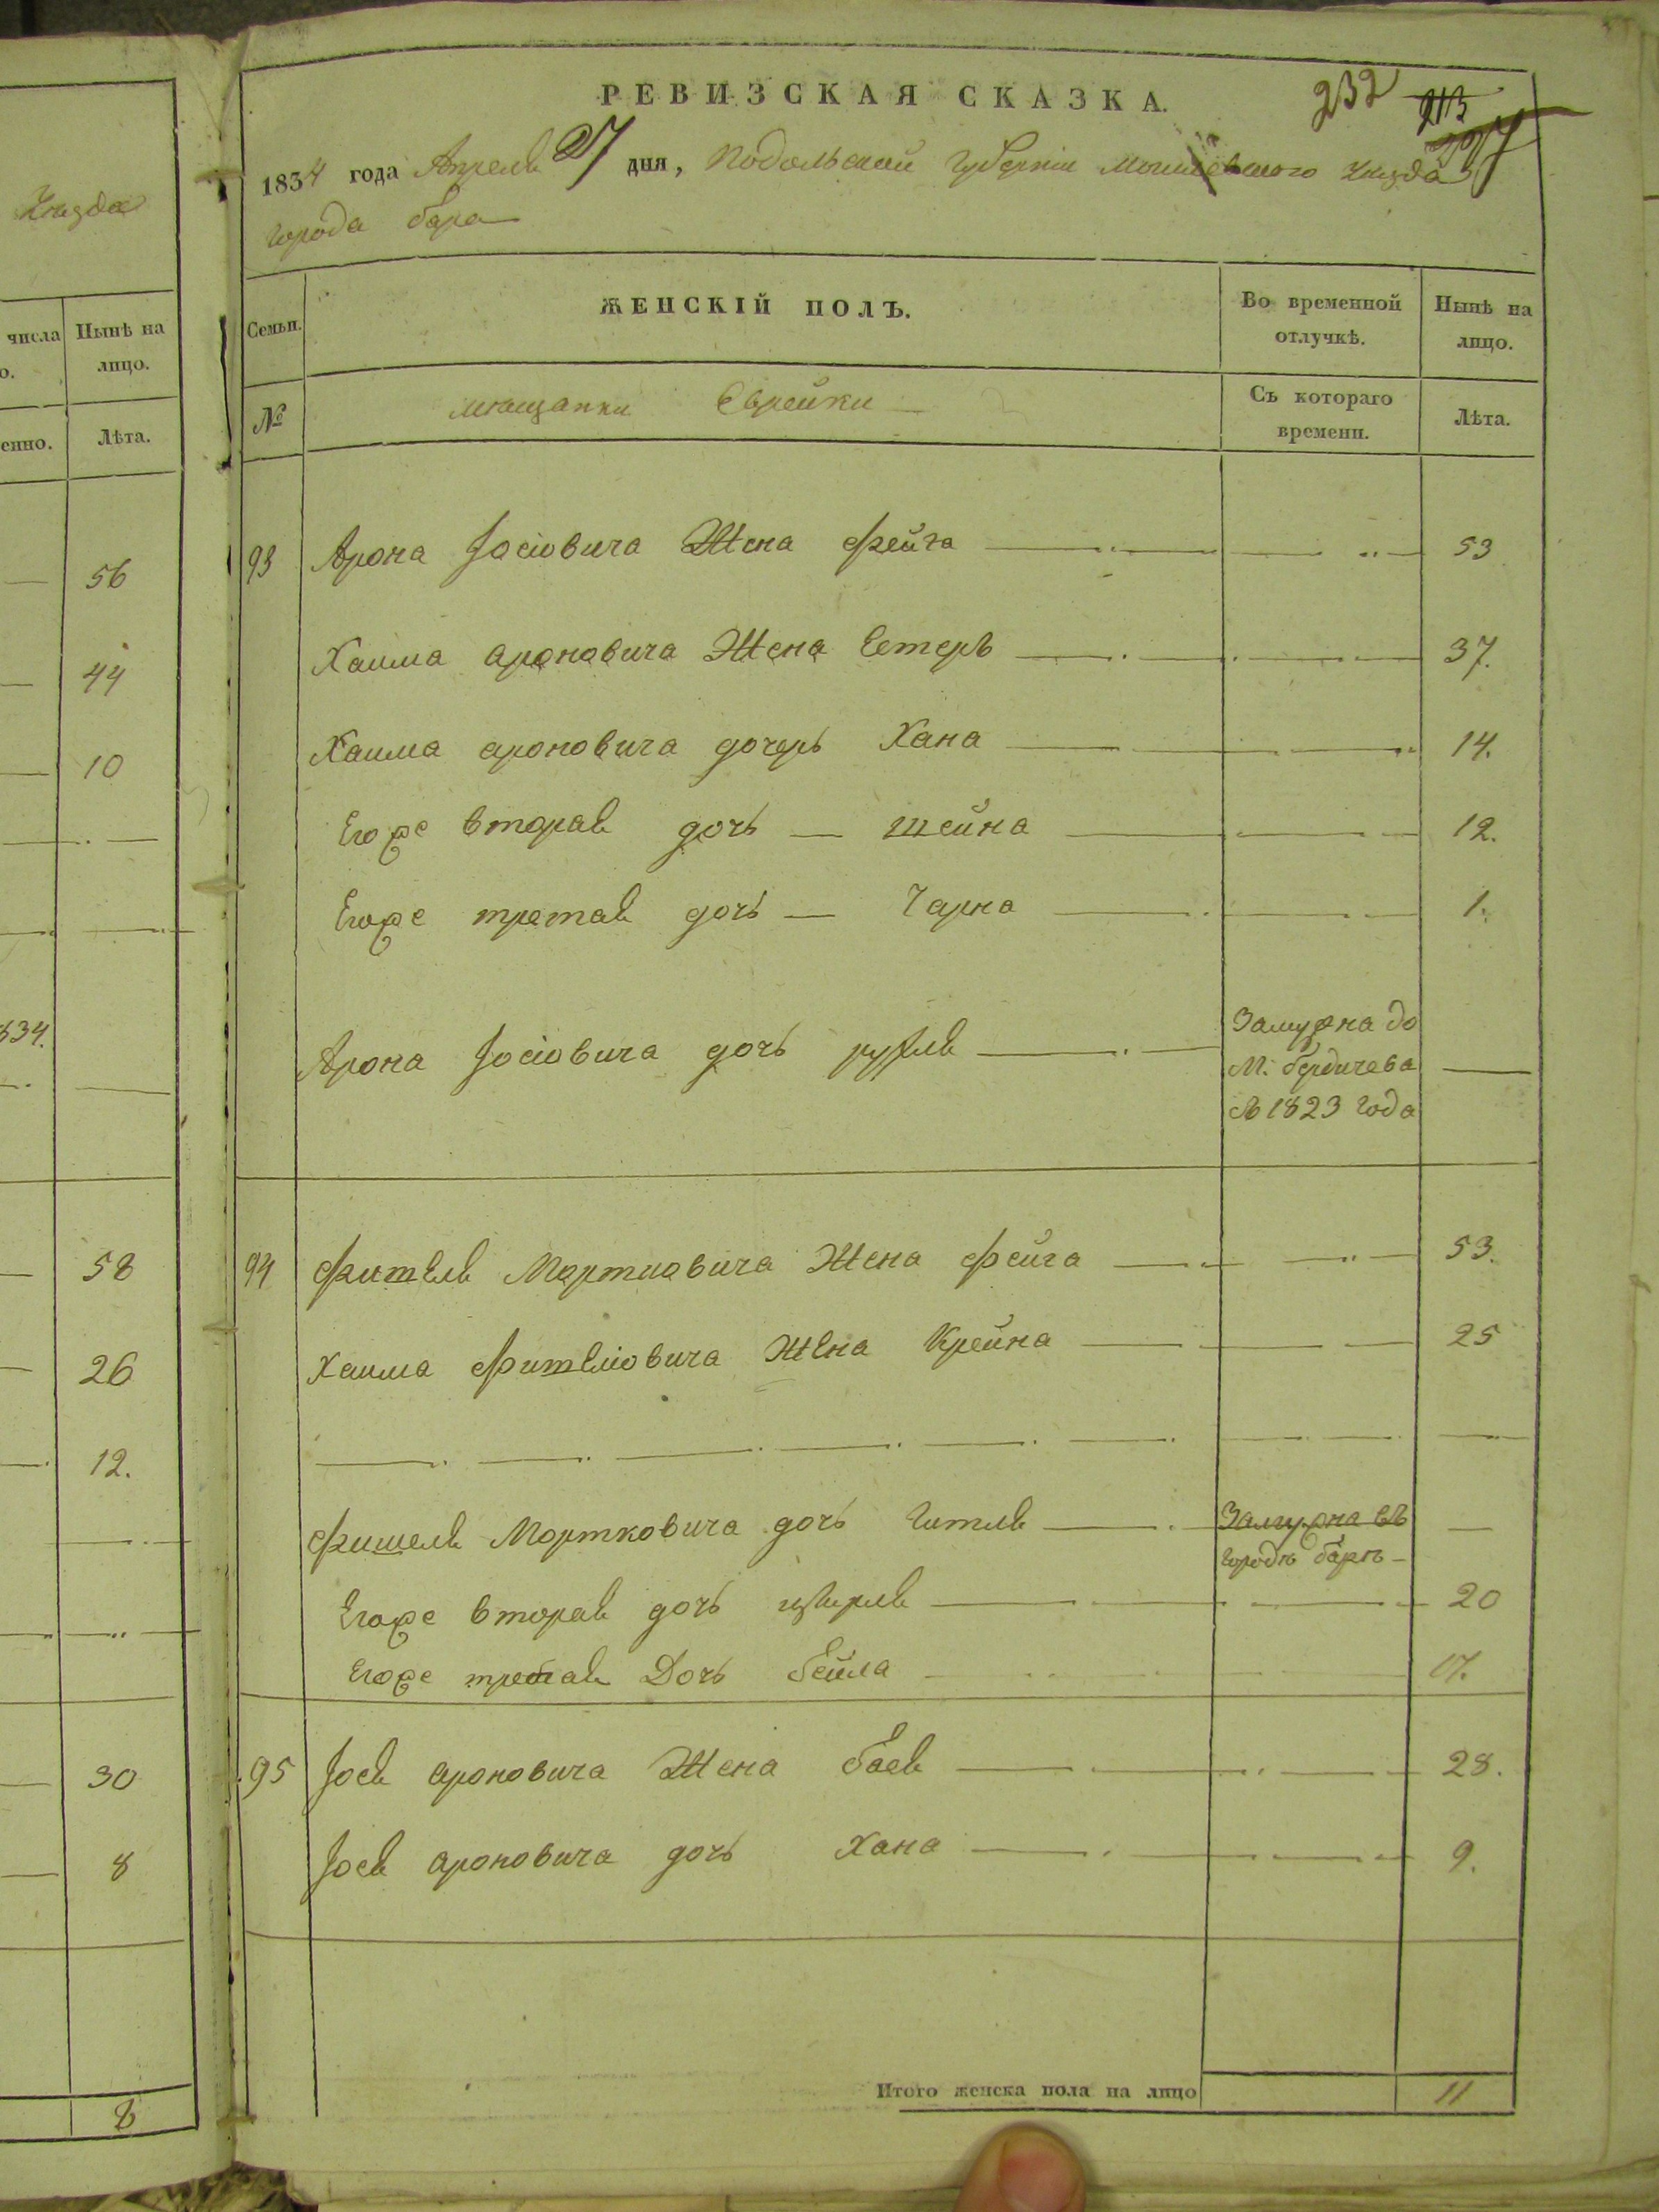 Уизда
числа Нынѣ на
о. лицо.
енно. Лѣта.
56
44
10
834.
58
26
12.
30
8
8
РЕВИЗСКАЯ СКАЗКА.
232 213
1834 года Апреля 27 дня, Подольской Губерніи Уизда
города бара
Семьи. ЖЕНСКІЙ ПОЛЪ. Во временной отлучкѣ. Нынѣ на лицо.
№ мющанки Еврейки Съ котораго времени. Лѣта.
93 Арона Іосіовича Жена Фейга 53
Хаима ароновича Жена Естеръ 37.
Хаима ароновича дочерь Хана 14.
Егоже вторая дочь — шейна 12.
Егоже третая дочь — Чарна 1.
Арона Іосіовича дочь рухля Замужна до
М. бердичева
съ 1823 года
94 Фишеля Мортковича Жена Фейга 53.
Хаима Фишеліовича Жена Крейна 25
Фишеля Мортковича дочь Гитля Замужна въ
городѣ барѣ
Егоже вторая дочь цвирля 20
Егоже третая Дочь бейла 17.
95 Іося ароновича Жена бася 28.
Іося ароновича дочь хана 9.
Итого женска пола на лицо 11